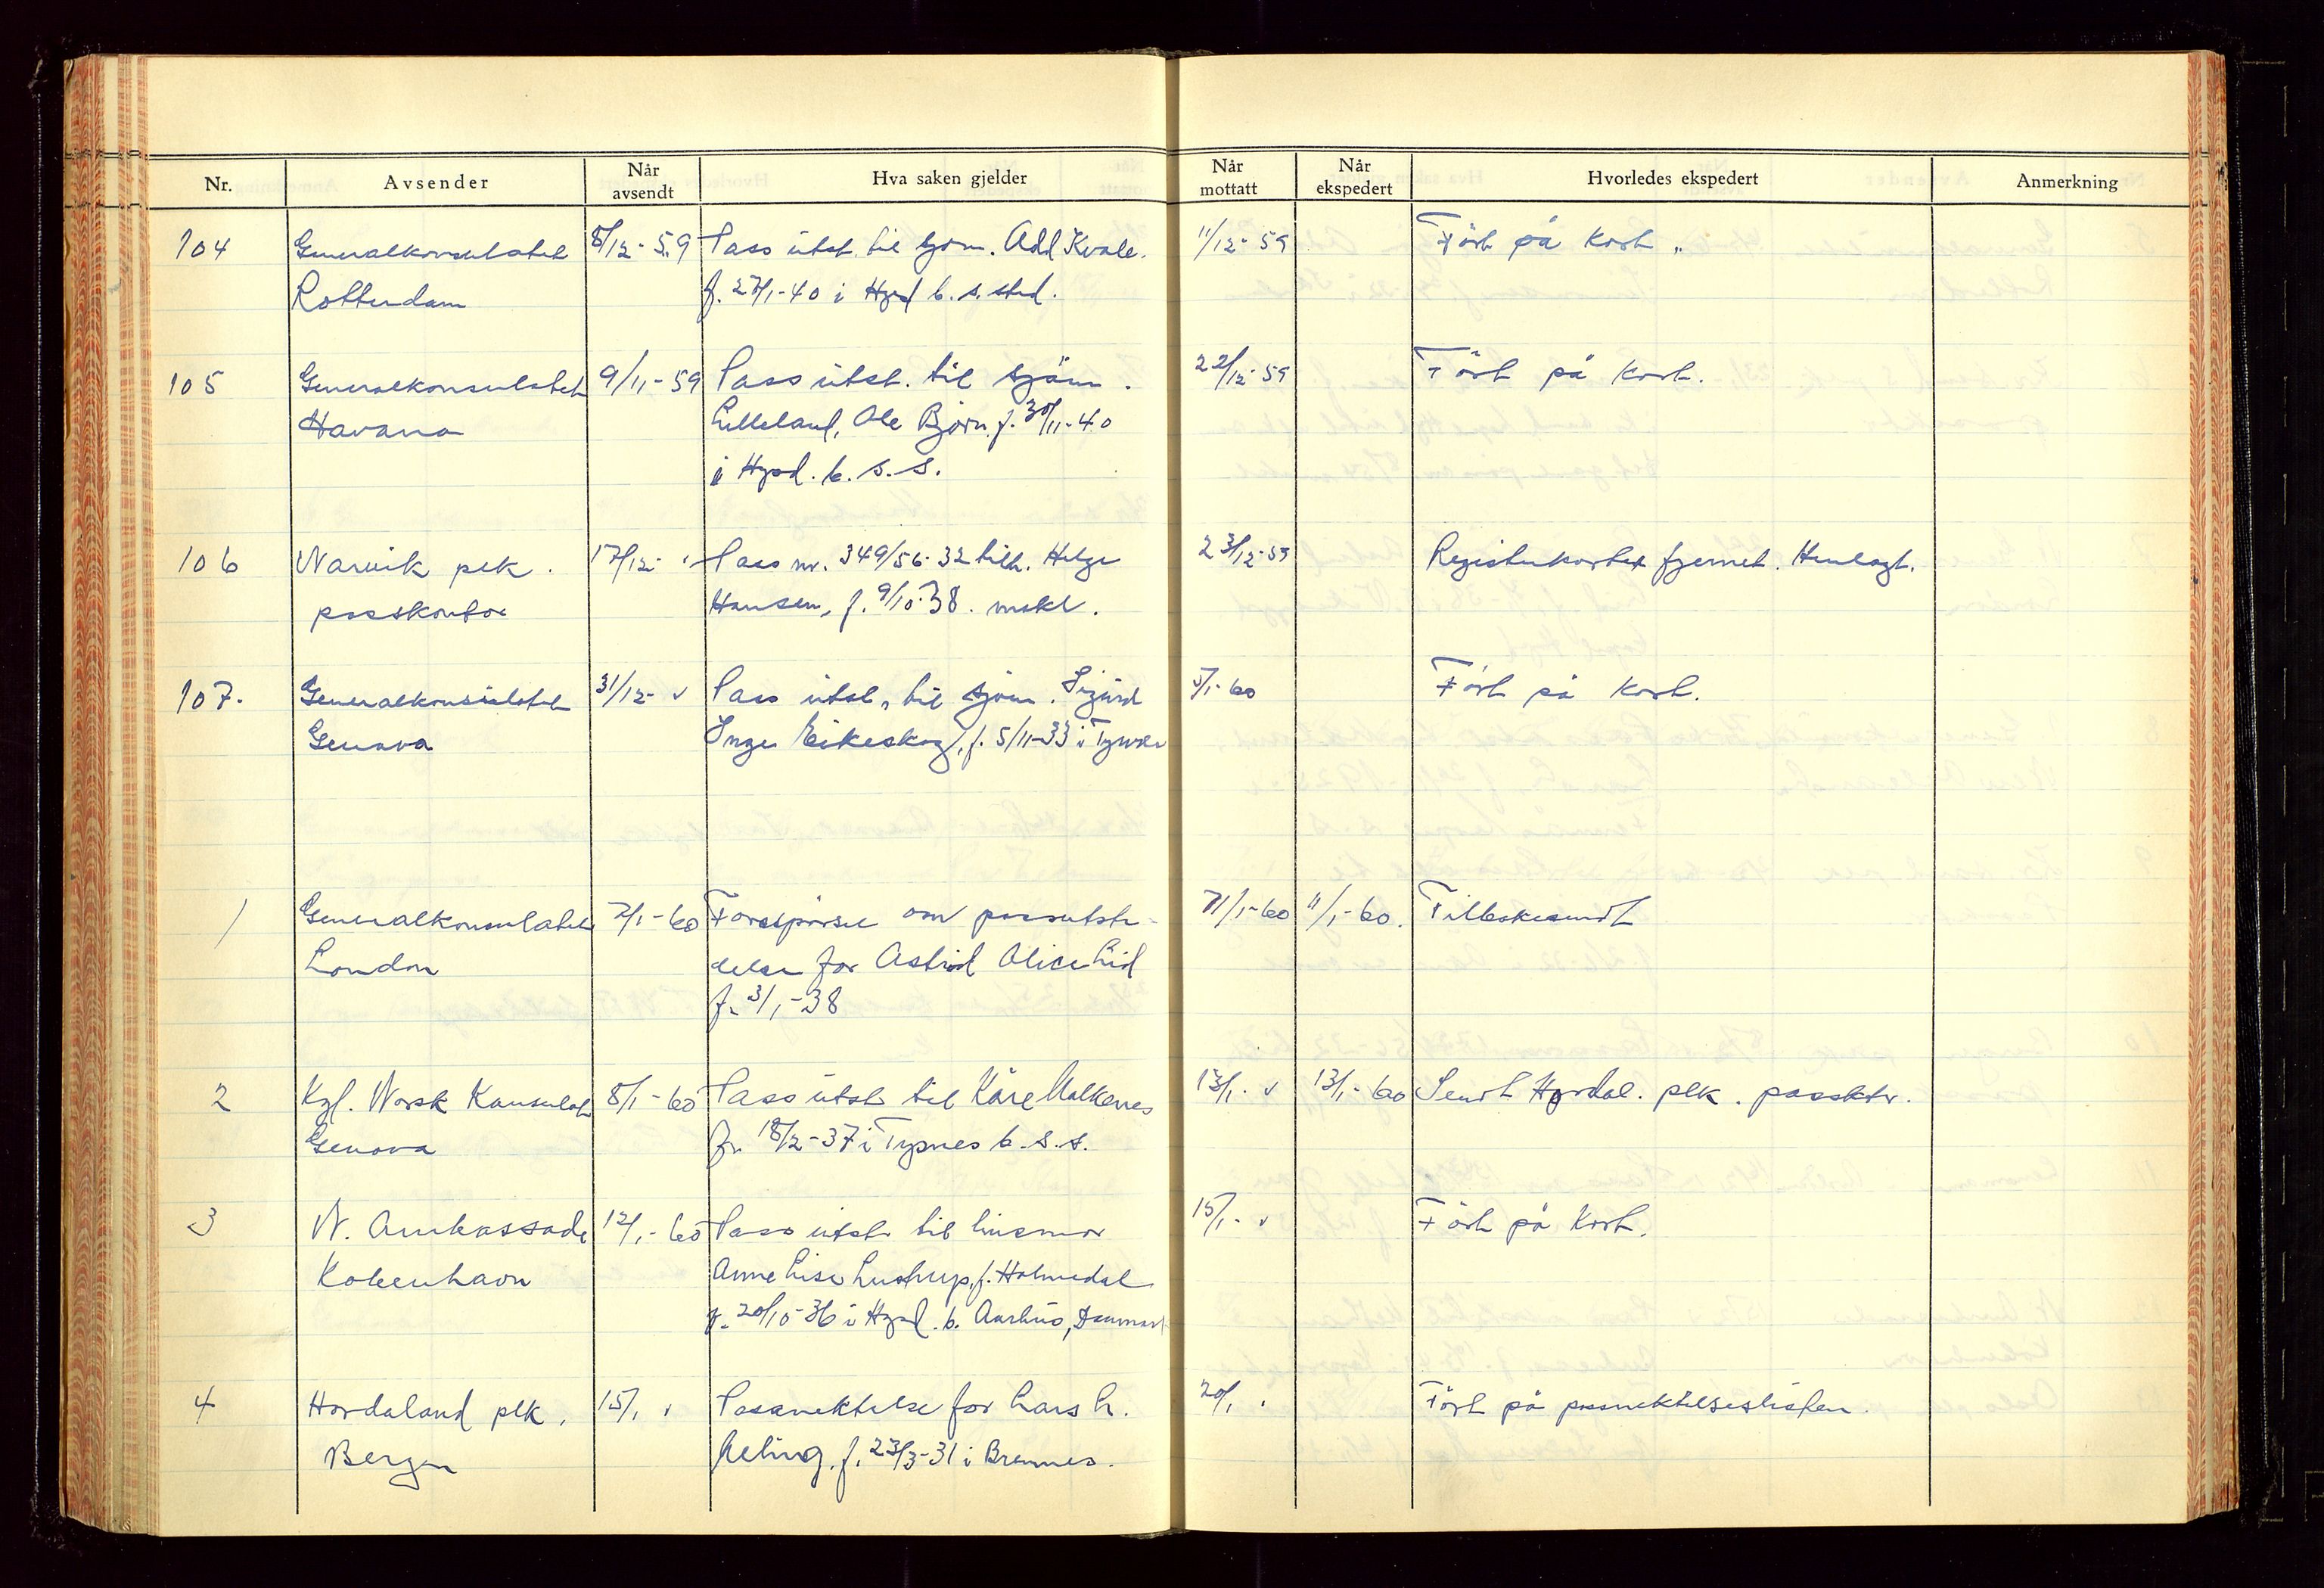 Nr. Avsender Når avsendt Hva saken gjelder Når mottatt Når ekspedert Hvorledes ekspedert Anmerkning
104 Generalkonsulatet 8/12-59 Pass utst. til sjøm. Odd Kvale. 11/12-59 Ført på kort.
Rotterdam f. 27/1-40 i Hgsd b. s. sted.
105 Generalkonsulatet 9/11-59 Pass utst. til sjøm. 22/12-59 Ført på kort.
Havana Lilleland, Ole Bjørn f. 30/11-40
i Hgsd. b. s. s.
106 Narvik plk. 17/12- Pass nr. 349/56-32 tilh. Helge 23/12-59 Registerkortet fjernet. Henlagt.
passkontor Hansen, f. 9/10-38. makl.
107. Generalkonsulatet 31/12- Pass utst. til sjøm. Sigurd 5/1-60 Ført på kort.
Genova Inge Eikeskog, f. 5/11-33 i Tysvær
1 Generalkonsulatet 7/1-60 Forespørsel om passutste- 11/1-60 11/1-60. Tilleskesendt
London delse for Astrid Alice Lid
f. 3/1-38
2 Kgl. Norsk Konsulat 8/1-60 Pass utst. til Kåre Malkenes 13/1- 13/1-60 Sendt Hordal. plk. passktr.
Genova f. 18/2-37 i Tysnes b. s. s.
3 N. Ambassade 12/1-60 Pass utst. til husmor 15/1- Ført på kort.
København Anne Lise Lustrup, f. Holmedal
f. 20/10-36 i Hgsd. b. Aarhus, Danmark
4 Hordaland plk. 15/1 Passnektelse for Lars L. 20/1 Ført på passnektelseslisten.
Bergen f. 23/3-31 i Bremnes.